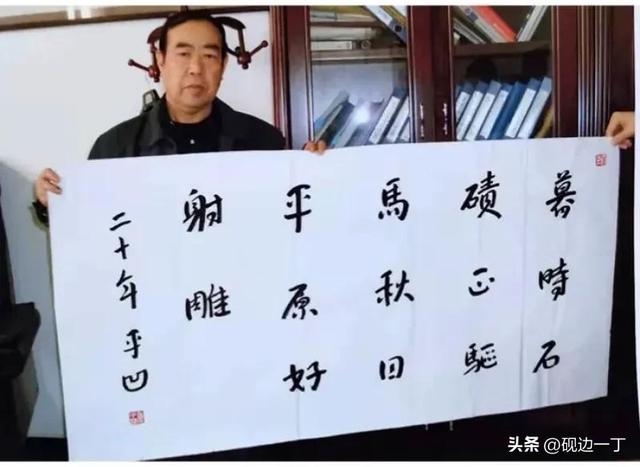 暮時石
磧正驅
馬秋日
平原好
射雕
二十年平凹
头条 @砚边一丁